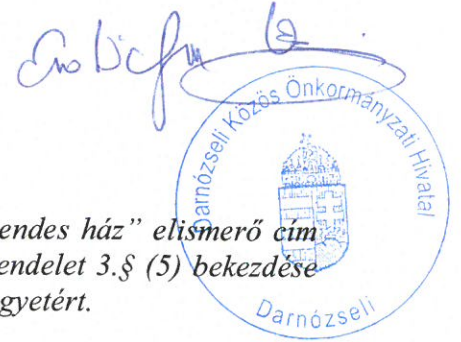 Darnózseli Közös Önkormányzati Hivatal
Darnózseli
endes ház" elismerő cím
endelet 3.§ (5) bekezdése
gyetért.